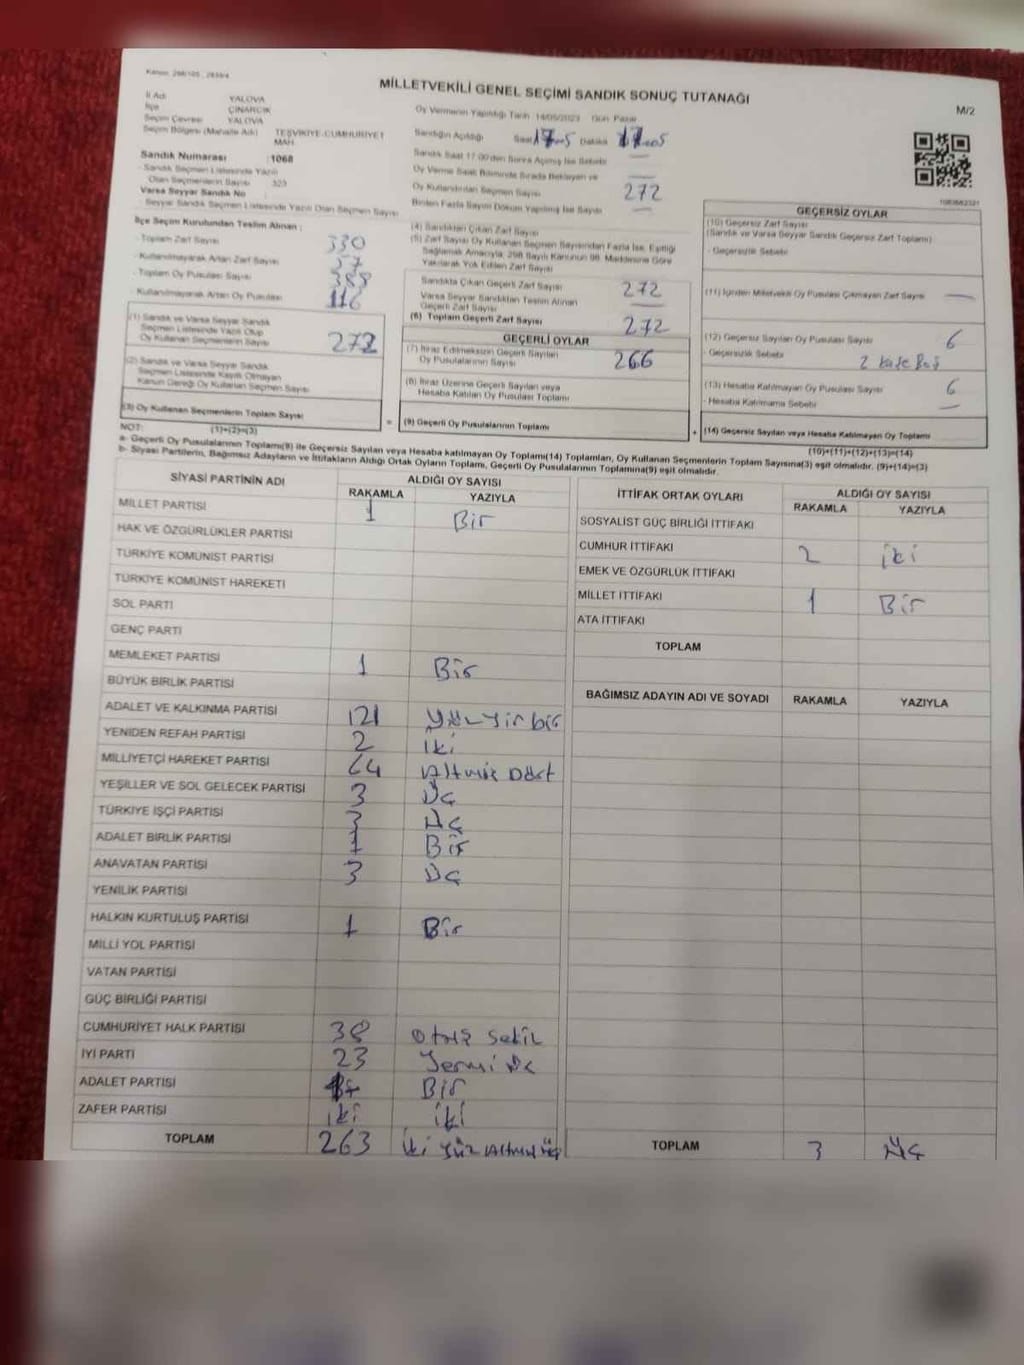 Kanun: 298/105 , 2839/4
MİLLETVEKİLİ GENEL SEÇİMİ SANDIK SONUÇ TUTANAĞI
M/2
İl Adı YALOVA
İlçe ÇINARCIK
Seçim Çevresi YALOVA
Seçim Bölgesi (Mahalle Adı) TEŞVİKİYE-CUMHURİYET MAH.
Sandık Numarası :1068
- Sandık Seçmen Listesinde Yazılı
Olan Seçmenlerin Sayısı 323
Varsa Seyyar Sandık No
- Seyyar Sandık Seçmen Listesinde Yazılı Olan Seçmen Sayısı
İlçe Seçim Kurulundan Teslim Alınan :
- Toplam Zarf Sayısı 330
- Kullanılmayarak Artan Zarf Sayısı 57
- Toplam Oy Pusulası Sayısı 388
- Kullanılmayarak Artan Oy Pusulası 116
(1) Sandık ve Varsa Seyyar Sandık
Seçmen Listesinde Yazılı Olup
Oy Kullanan Seçmenlerin Sayısı 272
(2) Sandık ve Varsa Seyyar Sandık
Seçmen Listesinde Kayıtlı Olmayan
Kanun Gereği Oy Kullanan Seçmen Sayısı
(3) Oy Kullanan Seçmenlerin Toplam Sayısı
(1)+(2)=(3)
Oy Vermenin Yapıldığı Tarih 14/05/2023 Gün Pazar
Sandığın Açıldığı Saat Dakika
Sandık Saat 17:00'den Sonra Açılmış İse Sebebi
Oy Verme Saati Bitiminde Sırada Bekleyen ve
Oy Kullandırılan Seçmen Sayısı 272
Birden Fazla Sayım Döküm Yapılmış İse Sayısı
(4) Sandıktan Çıkan Zarf Sayısı
(5) Zarf Sayısı Oy Kullanan Seçmen Sayısından Fazla İse, Eşitliği
Sağlamak Amacıyla, 298 Sayılı Kanunun 98. Maddesine Göre
Yakılarak Yok Edilen Zarf Sayısı
Sandıkta Çıkan Geçerli Zarf Sayısı 272
Varsa Seyyar Sandıktan Teslim Alınan
Geçerli Zarf Sayısı
(6) Toplam Geçerli Zarf Sayısı 272
GEÇERLİ OYLAR
(7) İtiraz Edilmeksizin Geçerli Sayılan
Oy Pusulalarının Sayısı 266
(8) İtiraz Üzerine Geçerli Sayılan veya
Hesaba Katılan Oy Pusulası Toplamı
= (9) Geçerli Oy Pusulalarının Toplamı
1063662321
GEÇERSİZ OYLAR
(10) Geçersiz Zarf Sayısı
(Sandık ve Varsa Seyyar Sandık Geçersiz Zarf Toplamı)
- Geçersizlik Sebebi
(11) İçinden Milletvekili Oy Pusulası Çıkmayan Zarf Sayısı —
(12) Geçersiz Sayılan Oy Pusulası Sayısı 6
- Geçersizlik Sebebi 2 kaşe Boş
(13) Hesaba Katılmayan Oy Pusulası Sayısı 6
- Hesaba Katılmama Sebebi —
+ (14) Geçersiz Sayılan veya Hesaba Katılmayan Oy Toplamı
(10)+(11)+(12)+(13)=(14)
NOT:
a- Geçerli Oy Pusulalarının Toplamı(9) ile Geçersiz Sayılan veya Hesaba katılmayan Oy Toplamı(14) Toplamları, Oy Kullanan Seçmenlerin Toplam Sayısına(3) eşit olmalıdır. (9)+(14)=(3)
b- Siyasi Partilerin, Bağımsız Adayların ve İttifakların Aldığı Ortak Oyların Toplamı, Geçerli Oy Pusulalarının Toplamına(9) eşit olmalıdır.
SİYASİ PARTİNİN ADI ALDIĞI OY SAYISI
RAKAMLA YAZIYLA
MİLLET PARTİSİ 1 Bir
HAK VE ÖZGÜRLÜKLER PARTİSİ
TÜRKİYE KOMÜNİST PARTİSİ
TÜRKİYE KOMÜNİST HAREKETİ
SOL PARTİ
GENÇ PARTİ
MEMLEKET PARTİSİ 1 Bir
BÜYÜK BİRLİK PARTİSİ
ADALET VE KALKINMA PARTİSİ 121
YENİDEN REFAH PARTİSİ 2 iki
MİLLİYETÇİ HAREKET PARTİSİ 64 Altmış Dört
YEŞİLLER VE SOL GELECEK PARTİSİ 3 Üç
TÜRKİYE İŞÇİ PARTİSİ 3 Üç
ADALET BİRLİK PARTİSİ 1 Bir
ANAVATAN PARTİSİ 3 Üç
YENİLİK PARTİSİ
HALKIN KURTULUŞ PARTİSİ 1 Bir
MİLLİ YOL PARTİSİ
VATAN PARTİSİ
GÜÇ BİRLİĞİ PARTİSİ
CUMHURİYET HALK PARTİSİ 38 Otuz Sekiz
İYİ PARTİ 23 Yermi Üç
ADALET PARTİSİ Bir
ZAFER PARTİSİ iki iki
TOPLAM 263 iki yüz Altmış üç
İTTİFAK ORTAK OYLARI ALDIĞI OY SAYISI
RAKAMLA YAZIYLA
SOSYALİST GÜÇ BİRLİĞİ İTTİFAKI
CUMHUR İTTİFAKI 2 iki
EMEK VE ÖZGÜRLÜK İTTİFAKI
MİLLET İTTİFAKI 1 Bir
ATA İTTİFAKI
TOPLAM
BAĞIMSIZ ADAYIN ADI VE SOYADI RAKAMLA YAZIYLA
TOPLAM 3 Üç